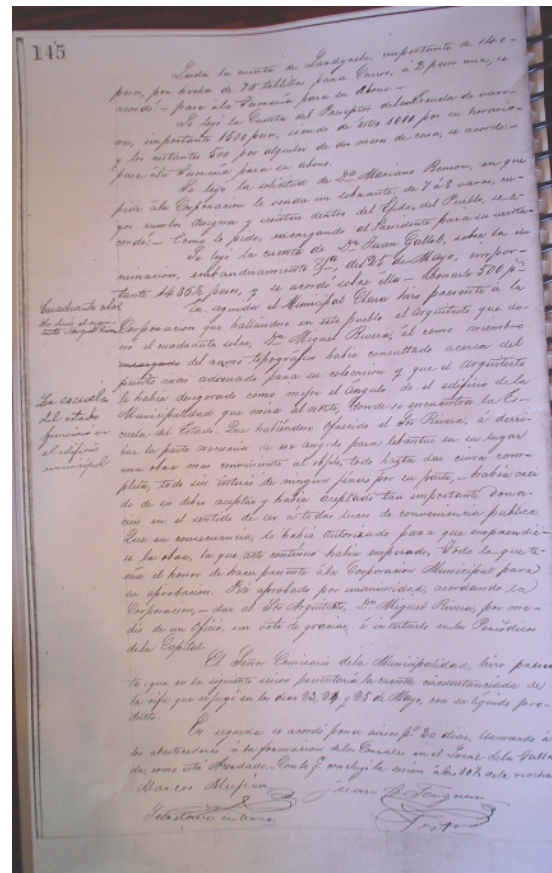 145
Leida la cuenta de Landziale, importante de 140
pesos, por hechura de 70 tablilla para Carros, á 2 pesos una, se
acordó:- pase á la Tesorería para su abono -
Se leyó la Cuenta del Preceptor de la Escuela de varo-
nes, importante 1500 pesos, siendo de éstos 1000 por su honorario
y los restantes 500 por alquiler de dos meses de casa, se acordo:-
pase á la Tesoreria para su abono.
Se leyó la solicitud de Dn Mariano Remon, en que
pide á la Corporacion le venda un sobrante, de 7 á 8 varas, cu-
yos rumbos designa y existen dentro del Ejido del Pueblo, se a-
cordó:- Como lo pide, encargando al Presidente para su venta
Se leyó la cuenta de Dn Juan Gallol, sobre la ilu-
minacion, embanderamiento del 25 de Mayo, impor-
tante 1435 pesos, y se acordó sobre ella - abonarle 500 p
Cuadrante solar
En seguida el Municipal Clara hizo presente á la
Corporacion que hallandose en este pueblo el Arquitecto que do-
nó el cuadrante solar, Dn Miguel Rivera, él como miembro
encargado del ramo topográfico habia consultado acerca del
punto mas adecuado para su colocacion y que el Arquitecto
La escuela
del estado
funcionó en
el edificio
municipal
le habia designado como mejor el ángulo de el edificio de la
Municipalidad que mira al norte, donde se encuentra la Es-
cuela del Estado. Que habiéndose ofrecido el Sor Rivera, á derri-
bar la parte necesaria de un angulo para lebantar en su lugar
una obra mas conveniente al objeto, todo hasta dar cima com-
pleta, todo sin interés de ningun género por su parte, - habia creí-
do de su deber aceptar y habia aceptado tan importante dona-
cion en el sentido de ser á todas luces de conveniencia publica.
Que en consecuencia, le habia autorizado para que emprendie-
se la obra, la que acto continuo habia empezado, Todo lo que te-
nia el honor de hacer presente á la Corporacion Municipal para
su aprobacion. Fué aprobado por unanimidad, acordando la
Corporacion, - dar al Sor Arquitecto, Dn Miguel Rivera, por me-
dio de un Oficio, un voto de gracias, é insertarlo en los Periódicos
de la Capital.
El Señor Comisario de la Municipalidad, hizo presen-
te, que en la siguiente sesion presentaría la cuenta circunstanciada de
la rifa que se jugó en los dias 23, 24 y 25 de Mayo, con su líquido pro-
ducto.
En seguida se acordó poner aviso pr 20 dias, llamando á
los abastecedores á la formacion de los Corrales en el Local de la Tabla-
da, como está mandado - Con lo q. concluyó la sesion á las 10½ de la noche
Marcos Mujica
Juan B.
Secretario interino